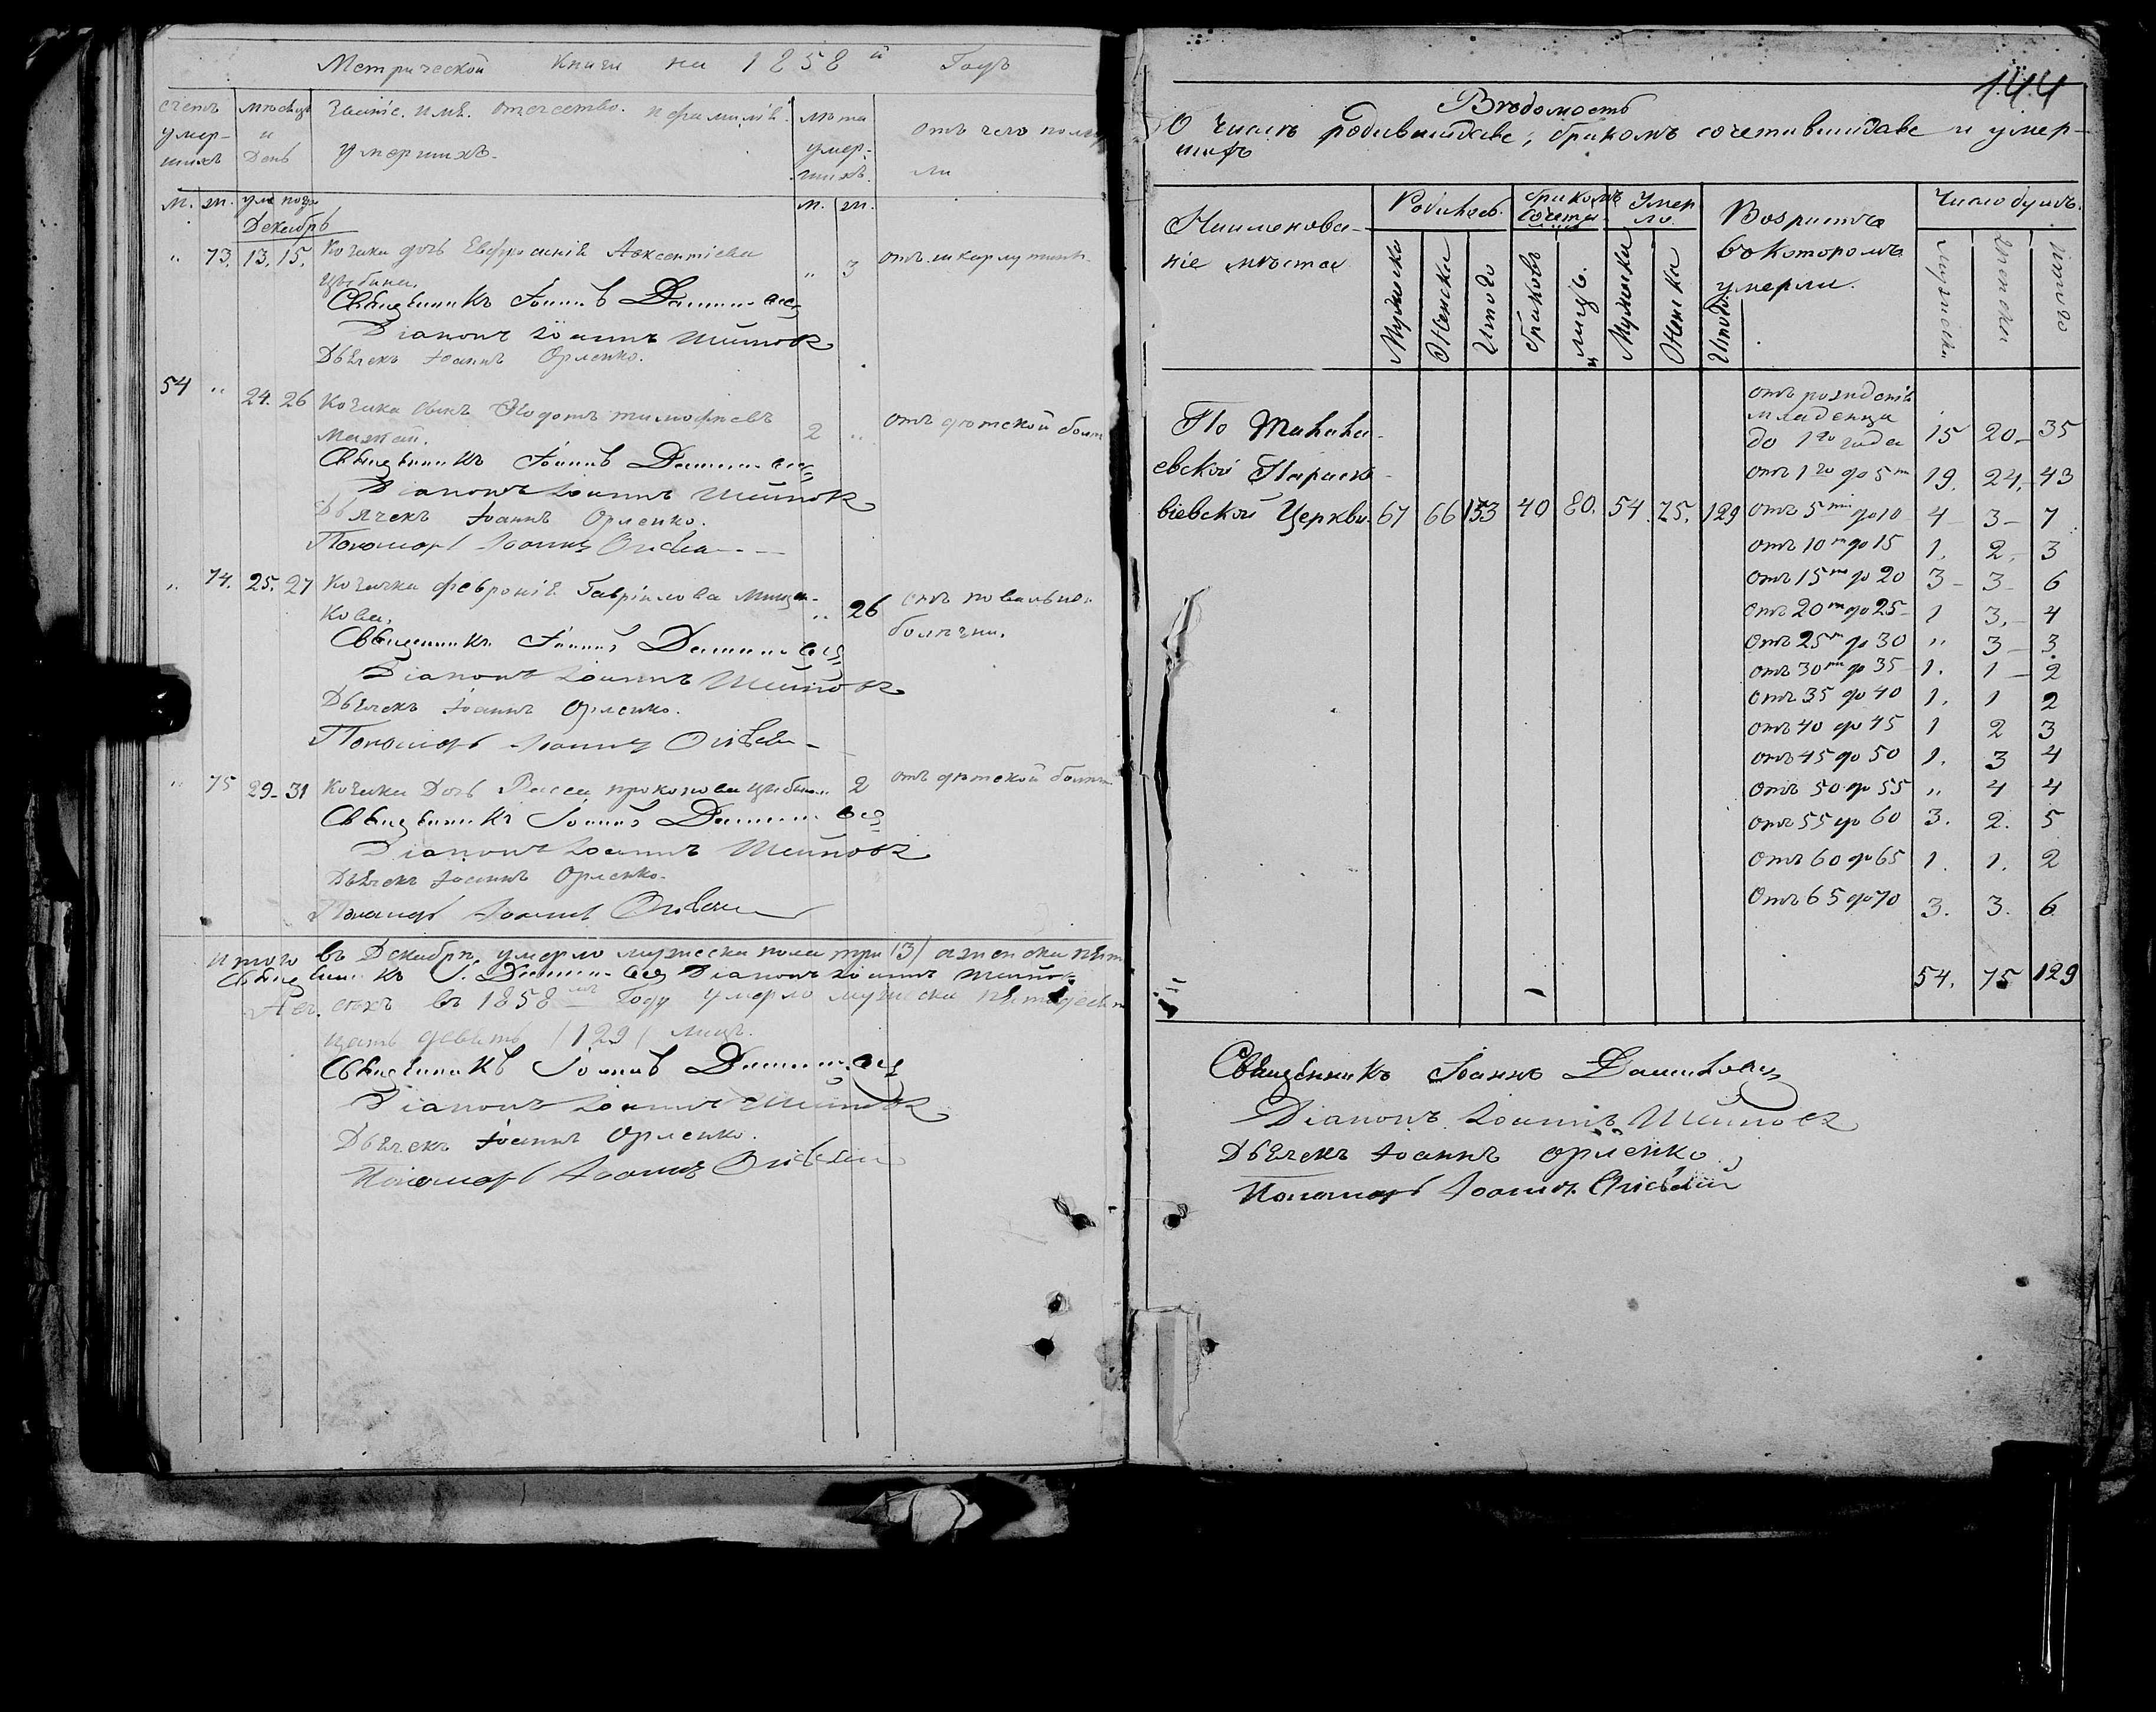 Метрической Книги на 1858й Годъ
счетъ умер-шихъ
мѣсяцъ и День
Званіе. имя. отечество. и фамилія. умершихъ.
лѣта умер-шихъ.
отъ чего помер
ли
м. ж. ум. погр. м. ж.
Декабрь
„ 73. 13. 15. Козака дочь Евфросинія Авксентіева „ 3 отъ шкарлутины
Цыбина.
Священникъ Іоаннъ
Діаконъ Іоаннъ
Дьячекъ Іоаннъ Орленко.
54 „ 24. 26 Козака сынъ Ѳедотъ тимофеевъ 2 „ отъ дѣтской болѣз
Священникъ Іоаннъ
Діаконъ Іоаннъ
Дьячекъ Іоаннъ Орленко.
Пономарь Іоаннъ
„ 74. 25. 27 Козачка Февронія Гавріилова „ 26 отъ повальной
кова. болѣзни.
Священникъ Іоаннъ
Діаконъ Іоаннъ
Дьячекъ Іоаннъ Орленко.
Пономарь Іоаннъ
„ 75 29 - 31 Козака Дочь Васса прокопова „ 2 отъ дѣтской болѣзн
Священникъ Іоаннъ
Діаконъ Іоаннъ
Дьячекъ Іоаннъ Орленко.
Пономарь Іоаннъ
итого въ Декабрѣ умерло мужеска пола три /3/ а женска пят
Священникъ І. Діаконъ Іоаннъ
въ 1858мъ Году умерло мужеска
цать девять /129/ лицъ.
Священникъ Іоаннъ
Діаконъ Іоаннъ
Дьячекъ Іоаннъ Орленко.
Пономарь Іоаннъ
144
Вѣдомость
О числѣ родившихся, бракомъ сочетавшихся и умер-
шихъ
Наименова-
ніе мѣста
Родилось.
Мужеска
Женска
Итого
бракомъ сочета
браковъ
лицъ.
Умер
ло.
Мужеска
Женска
Итого
Возрастъ
въ которомъ
умерли.
Число душъ.
Мужеска
Женска
Итого
отъ рожденія
младенца
до 1го года 15 20 - 35
отъ 1го до 5ти 19. 24. - 43
отъ 5ти до 10 4 - 3 - 7
отъ 10ти до 15 1. 2. - 3
отъ 15ти до 20 3 - 3 - 6
отъ 20ти до 25 - 1 3. - 4
отъ 25ти до 30 „ 3 - 3.
отъ 30ти до 35 1. 1 - 2
отъ 35 до 40 1. 1 2
отъ 40 до 45 1 2 3
отъ 45 до 50 1. 3 4
отъ 50 до 55 „ 4 4
отъ 55 до 60 3. 2. 5
отъ 60 до 65 1. 1. 2
отъ 65 до 70 3. 3. 6
54. 75 129
По
евской Параске-
віевской Церкви. 67 66 133 40 80. 54. 75. 129
Священникъ Іоаннъ
Діаконъ Іоаннъ
Дьячекъ Іоаннъ Орленко
Пономарь Іоаннъ